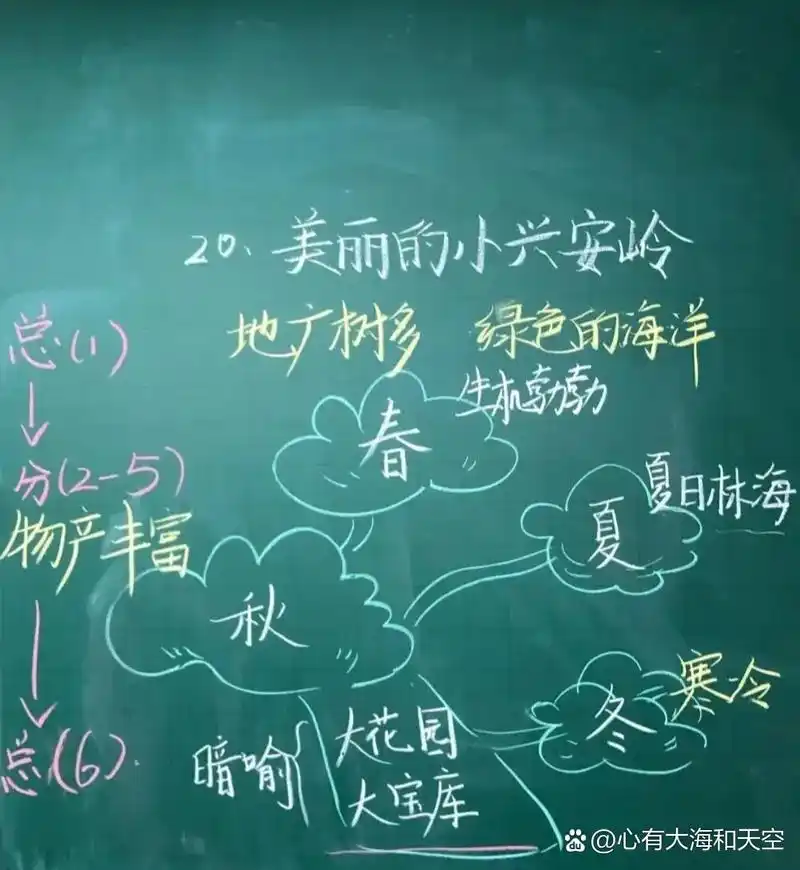 20、美丽的小兴安岭
地广树多 绿色的海洋
总(1)
生机勃勃
春
分(2-5)
夏日林海
夏
物产丰富
秋
寒冷
冬
总(6)
暗喻
大花园
大宝库
@心有大海和天空